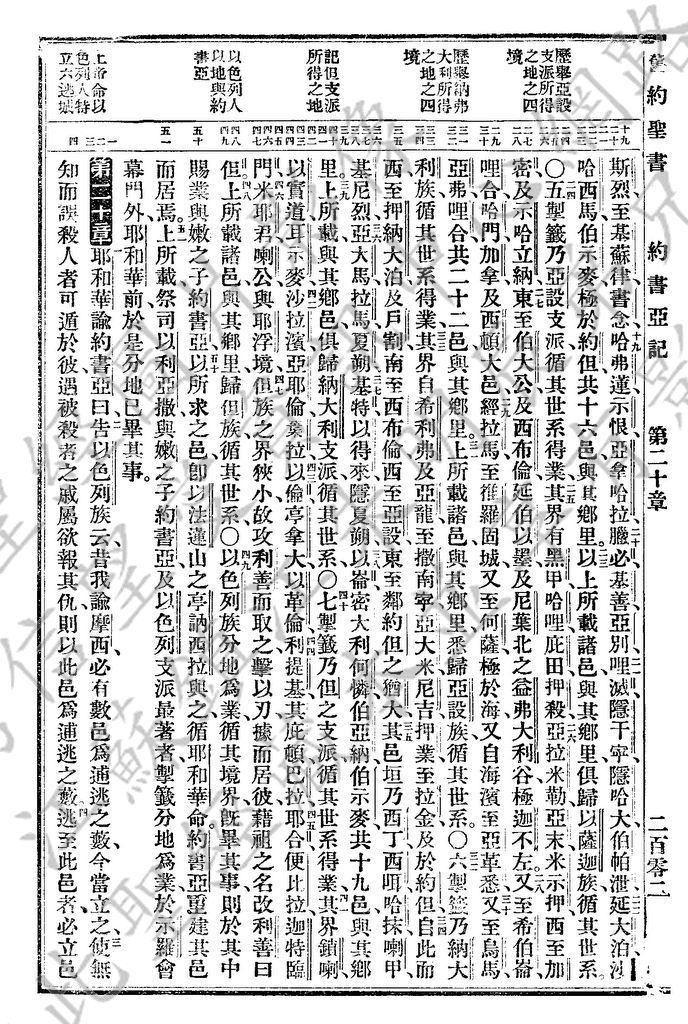 舊約聖書
約書亞記
第二十章
二百零二
歷舉亞設
支派所得
之地之四
境
歷舉納弗
大利所得
之地之四
境
記但支派
所得之地
以色列人
以地與約
書亞
上帝命以
色列人特
立六逃城
斯烈至基蘇律書念哈弗達示恨亞拿哈拉臘必基善亞別哩滅隱干寧隱哈大伯帕泄延大泊沙
哈西馬伯示麥極於約但共十六邑與其鄉里以上所載諸邑與其鄉里俱歸以薩迦族循其世系
〇五掣籤乃亞設支派循其世系得業其界有黑甲哈哩庇田押殺亞拉米勒亞末米示押西至加
密及示哈立納東至伯大公及西布倫延伯以墨及尼葉北之益弗大利谷極迦不左又至希伯崙
哩合哈門加拿及西頓大邑經拉馬至推羅固城又至何薩極於海又自海濱至亞革悉又至烏馬
亞弗哩合共二十二邑與其鄉里上所載諸邑與其鄉里悉歸亞設族循其世系〇六掣籤乃納大
利族循其世系得業其界自希利弗及亞龍至撒南寧亞大米尼吉押業至拉金及於約但自此而
西至押納大泊及戶割南至西布倫西至亞設東至鄰約但之猶大其邑垣乃西丁西咡哈採喇甲
基尼烈亞大馬拉馬夏朔基特以得來隱夏朔以崙密大利何憐伯亞納伯示麥共十九邑與其鄉
里上所載與其鄉邑俱歸納大利支派循其世系〇七掣籤乃但之支派循其世系得業其界鎖喇
以實道耳示麥沙拉濱亞耶倫葉拉以倫亭拿大以革倫利提基其庇頓巴拉耶合便比拉迦特臨
門米耶君喇公與耶浮境但族之界狹小故攻利善而取之擊以刃據而居彼藉祖之名改利善曰
但上所載諸邑與其鄉里歸但族循其世系〇以色列族分地爲業循其境界旣畢其事則於其中
賜業與嫩之子約書亞以所求之邑卽以法蓮山之亭訥西拉與之循耶和華命約書亞重建其邑
而居焉上所載祭司以利亞撒與嫩之子約書亞及以色列支派最著者掣籤分地爲業於示羅會
幕門外耶和華前於是分地已畢其事
第二十章耶和華諭約書亞曰告以色列族云昔我諭摩西必有數邑爲逋逃之藪今當立之使無
知而誤殺人者可遁於彼遇被殺者之戚屬欲報其仇則以此邑爲逋逃之藪至此邑者必立邑